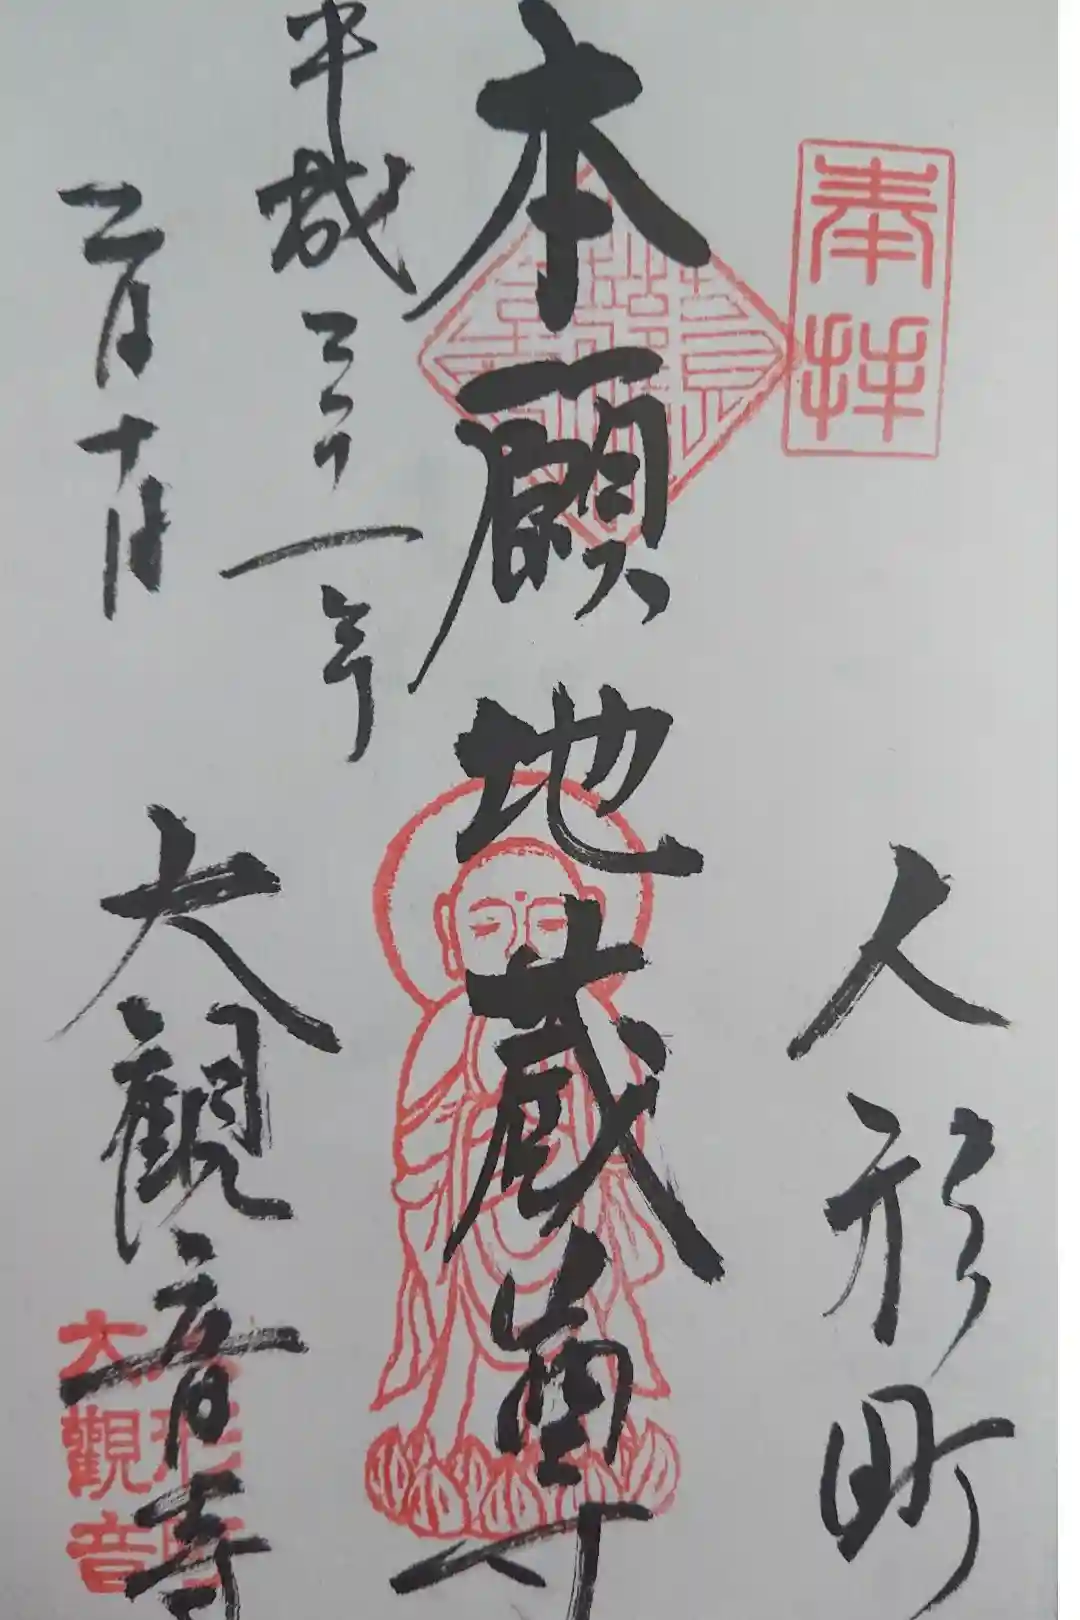 奉拝
人形町
本願地蔵尊
平成三十一年
二月十日
大観音寺
人形町
大觀音